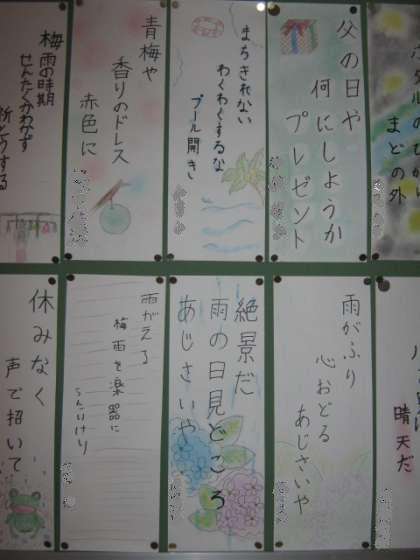 まどの外
父の日や
何にしようか
プレゼント
まちきれない
わくわくするな
プール開き
青梅や
香りのドレス
赤色に
梅雨の時期
せんたくかわかず
晴天だ
雨がふり
心おどる
あじさいや
絶景だ
雨の日見どころ
あじさいや
雨がえる
梅雨を楽器に
休みなく
声で招いて